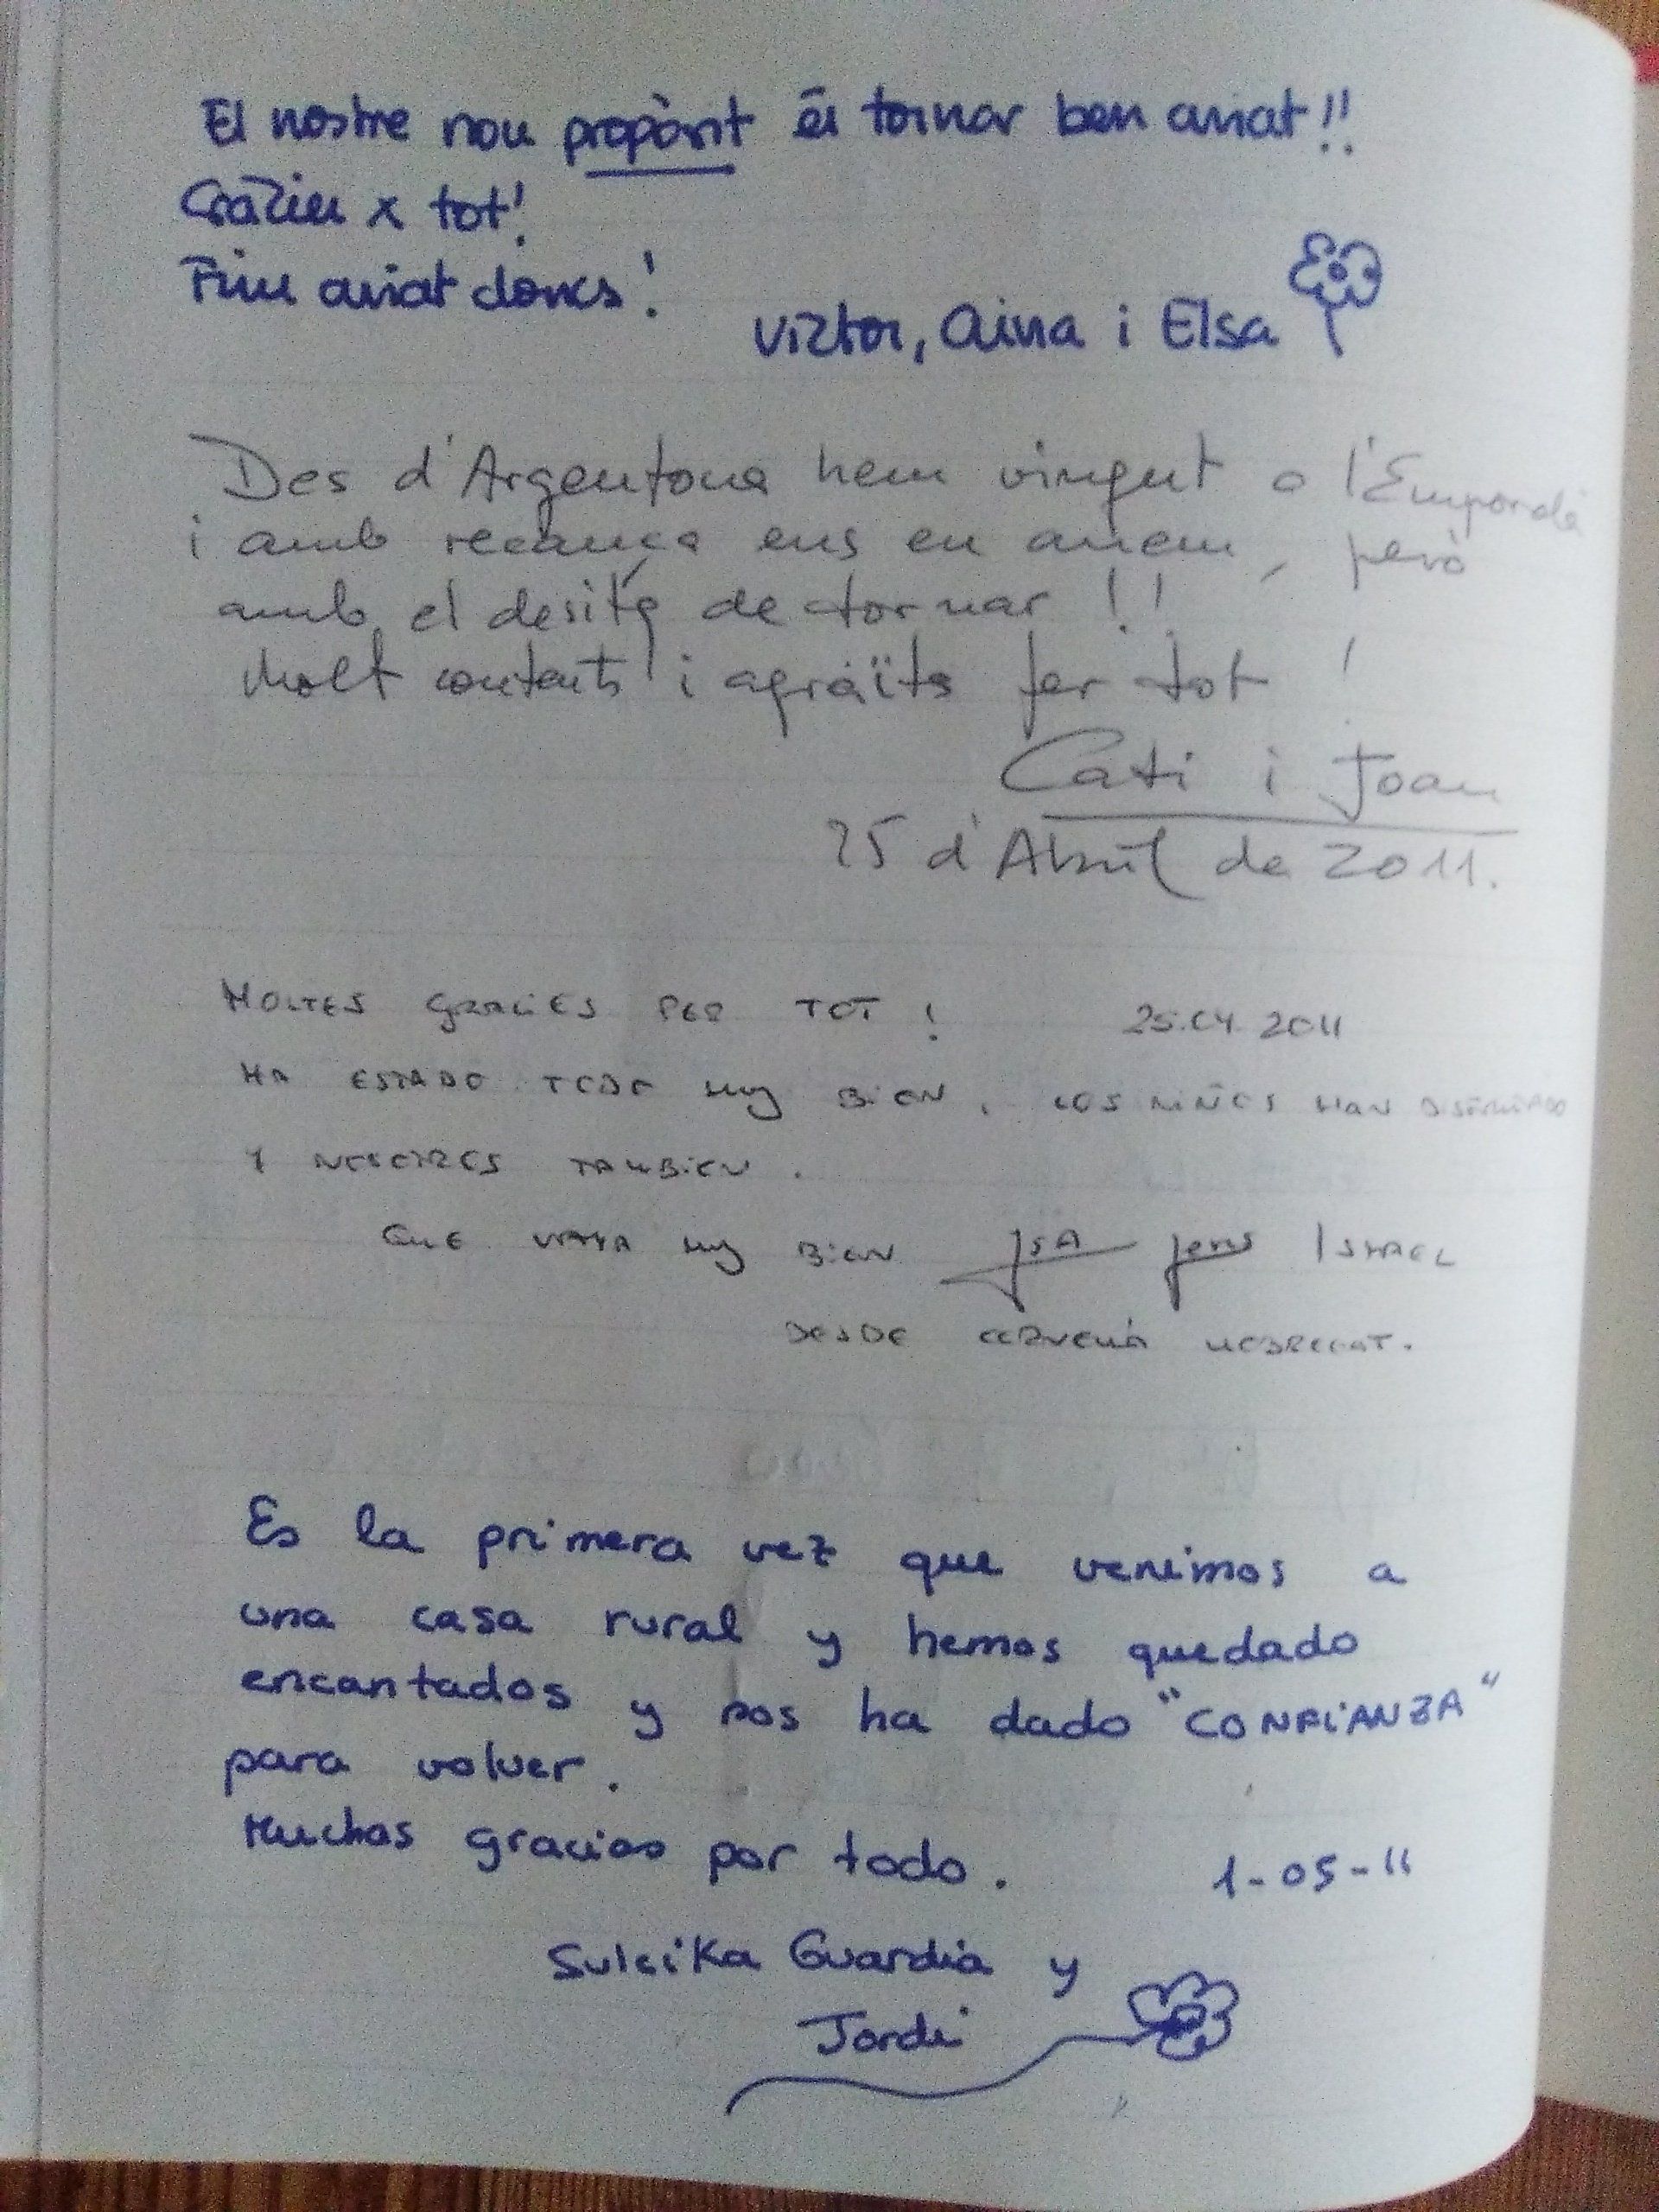 El nostre nou propòsit és tornar ben aviat!!
Gràcies x tot!
Fins aviat doncs!
Victor, Aina i Elsa
Des d'Argentona hem vingut a l'Empordà
i amb recança ens en anem, però
amb el desitg de tornar!!
Molt contents i agraïts per tot!
Cati i Joan
25 d'Abril de 2011.
MOLTES GRACIES PER TOT! 25.04.2011
HA ESTADO TODO MUY BIEN. LOS NIÑOS HAN DISFRUTADO
Y NOSOTROS TAMBIEN.
QUE VAYA MUY BIEN ISA JENS ISMAEL
DESDE CERVELLÓ LLOBREGAT.
Es la primera vez que venimos a
una casa rural y hemos quedado
encantados y nos ha dado "CONFIANZA"
para volver.
Muchas gracias por todo. 1-05-11
Suleika Guardia y
Jordi